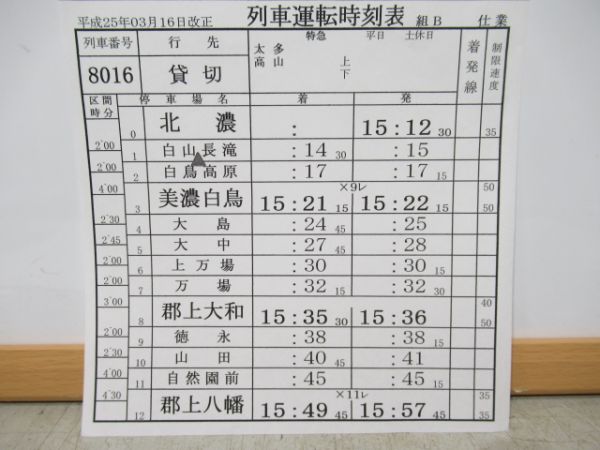 平成25年03月16日改正 列車運転時刻表 組B 仕業
列車番号 行先 太多 高山 特急 平日 土休日 上 下 着発線 制限速度
8016 貸切
区間時分 停車場名 着 発
0 北濃 : 15:12 30 35
2'00
1 白山長滝 :14 30 :15
2'00
2 白鳥高原 :17 :17 15
4'00
×9レ 50
3 美濃白鳥 15:21 15 15:22 15 50
2'30
4 大島 :24 45 :25
2'45
5 大中 :27 45 :28
2'00
6 上万場 :30 :30
2'00
7 万場 :32 15 :32 15
3'00
40
8 郡上大和 15:35 30 15:36 50
2'00
9 徳永 :38 :38 15
2'30
10 山田 :40 45 :41
4'00
11 自然園前 :45 :45 15
4'30
×11レ 35
12 郡上八幡 15:49 45 15:57 45 35